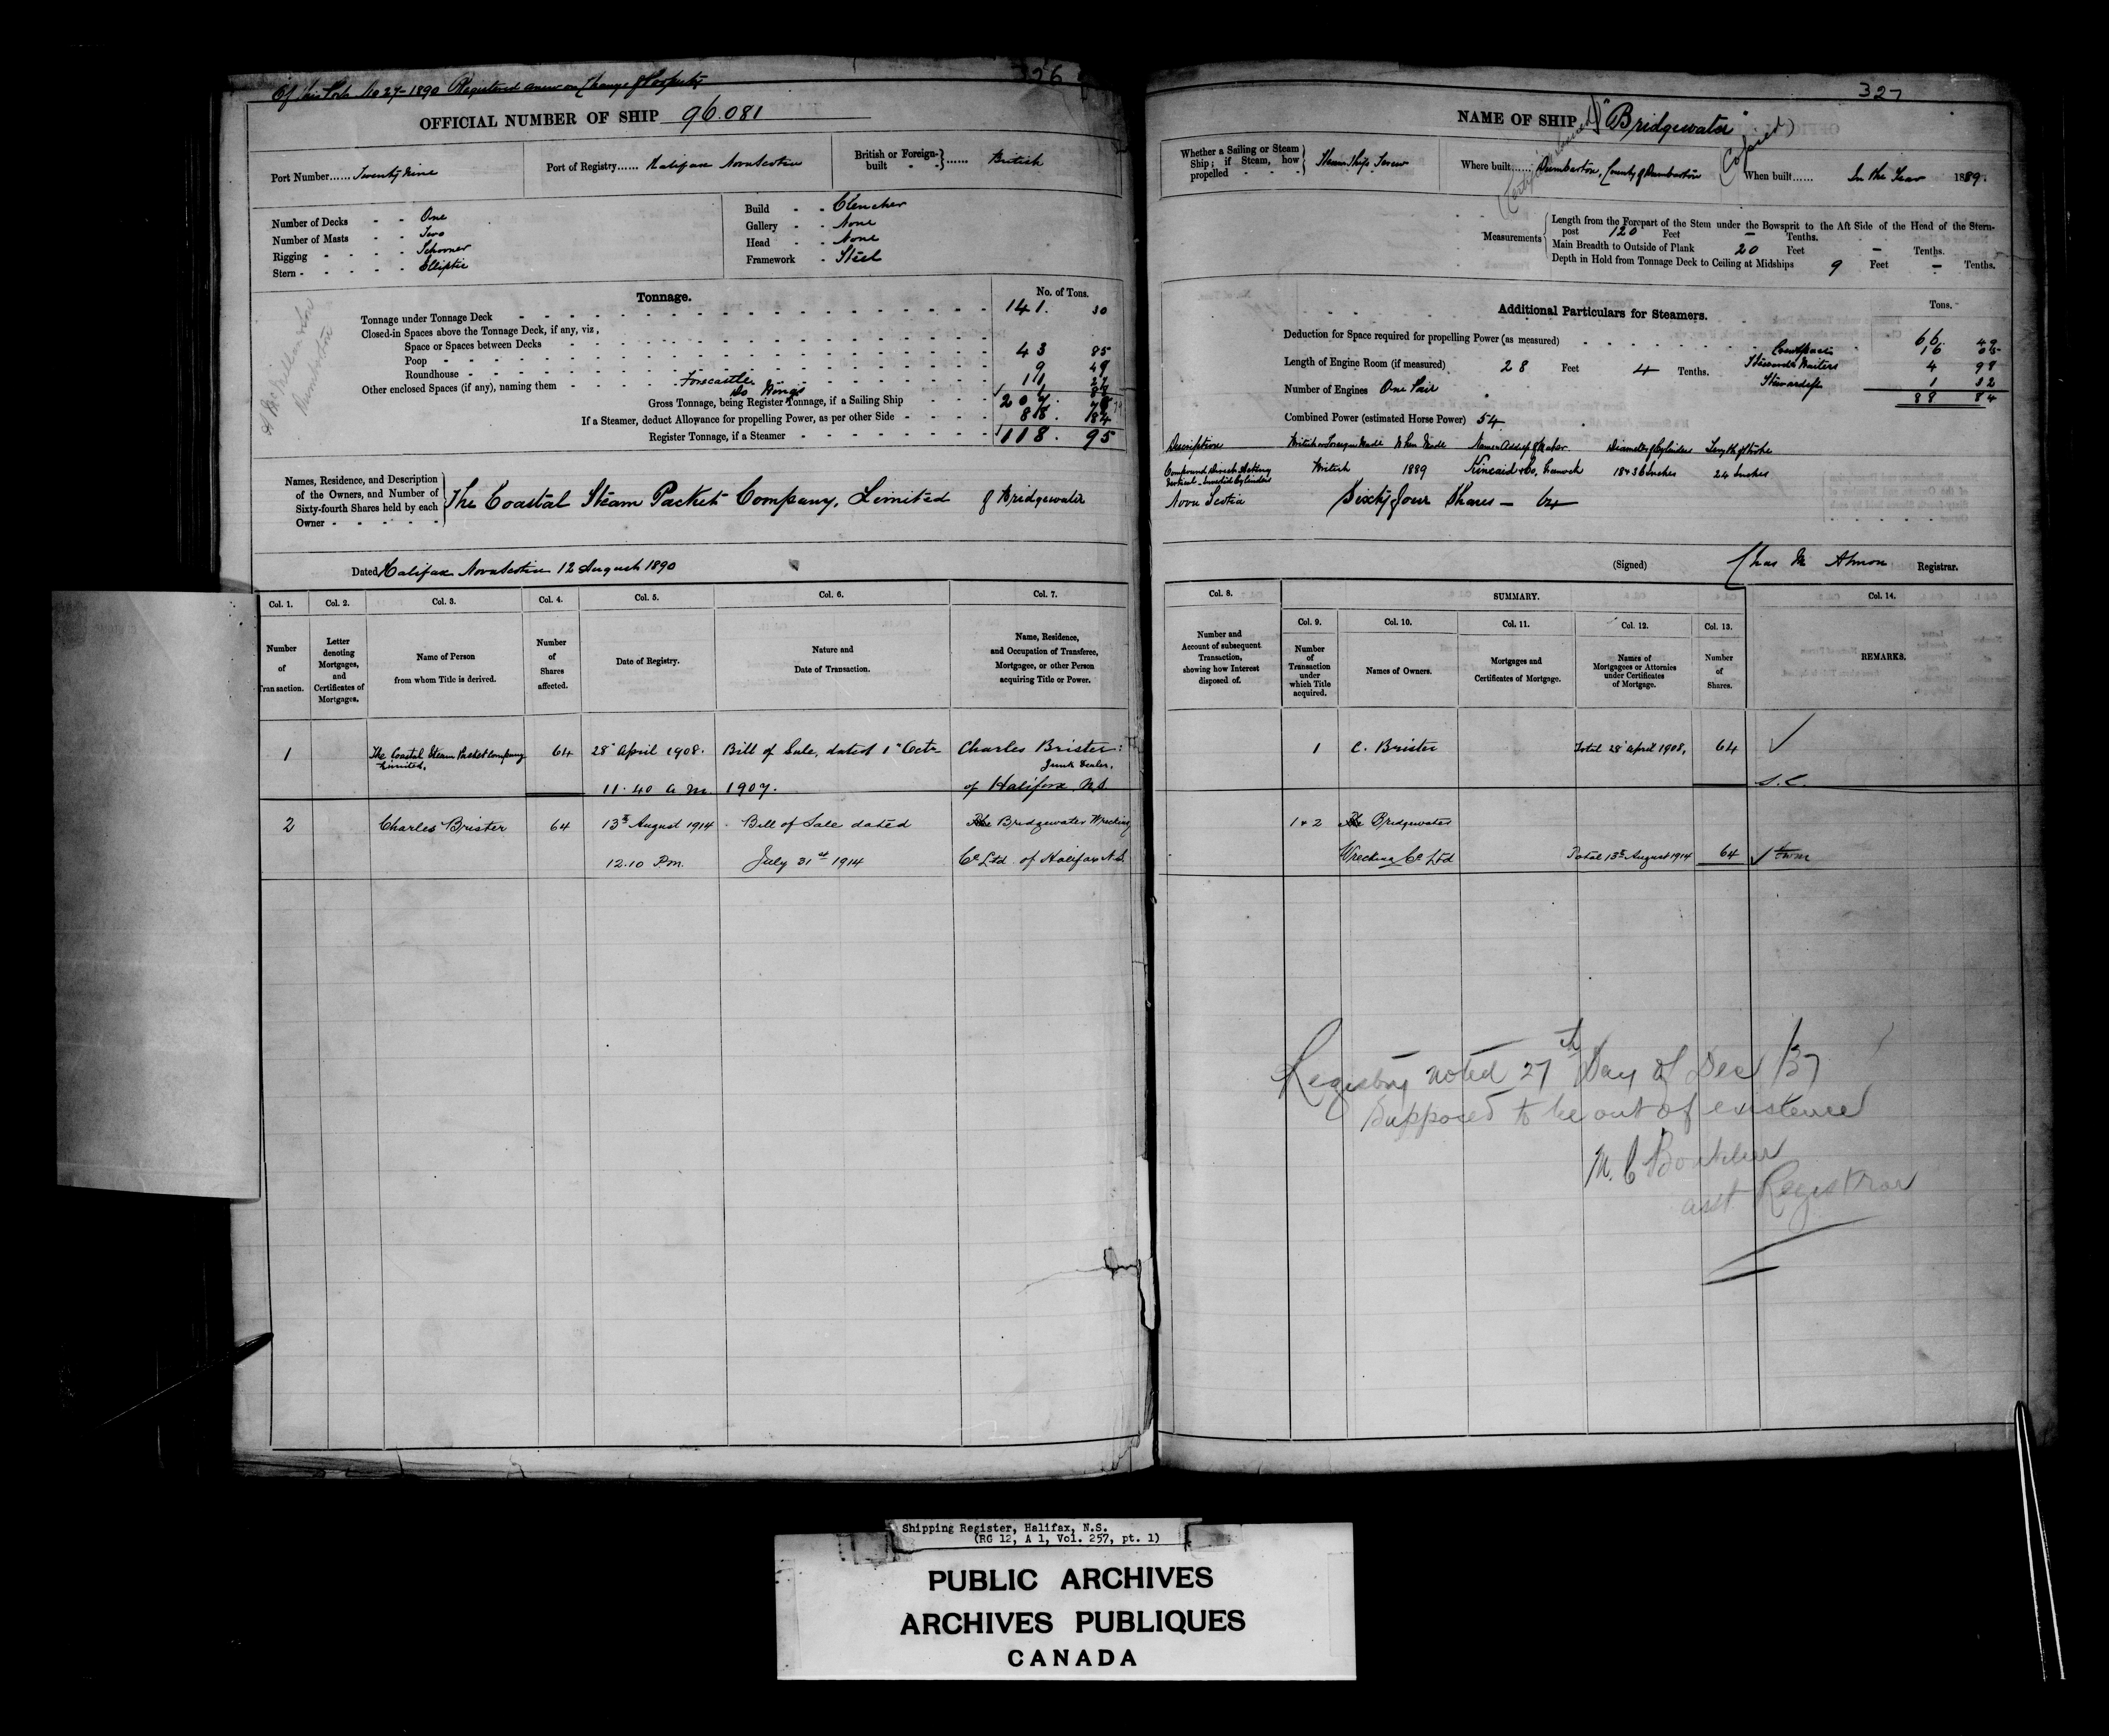 326
Of this Port No 27-1890 Registered anew on Change of Property
OFFICIAL NUMBER OF SHIP 96.081
Port Number...... Twenty Nine
Port of Registry...... Halifax Nova Scotia
British or Foreign-built - - } ...... British
Number of Decks - - One
Number of Masts - - Two
Rigging - - - - Schooner
Stern - - - - - Elliptic
Build - - Clencher
Gallery - - None
Head - - None
Framework - Steel
Tonnage.
No. of Tons.
Tonnage under Tonnage Deck 141. 30
Closed-in Spaces above the Tonnage Deck, if any, viz,
Space or Spaces between Decks
Poop 43 85
Roundhouse 9 49
Other enclosed Spaces (if any), naming them Forecastle 11
Do Wings
Gross Tonnage, being Register Tonnage, if a Sailing Ship 207.
If a Steamer, deduct Allowance for propelling Power, as per other Side 88. 84
Register Tonnage, if a Steamer 118. 95
Names, Residence, and Description of the Owners, and Number of Sixty-fourth Shares held by each Owner
The Coastal Steam Packet Company, Limited of Bridgewater
Dated Halifax Nova Scotia 12 August 1890
Col. 1. Col. 2. Col. 3. Col. 4. Col. 5. Col. 6. Col. 7.
Number of Transaction.
Letter denoting Mortgages, and Certificates of Mortgages.
Name of Person from whom Title is derived.
Number of Shares affected.
Date of Registry.
Nature and Date of Transaction.
Name, Residence, and Occupation of Transferee, Mortgagee, or other Person acquiring Title or Power.
1 The Coastal Steam Packet Company Limited. 64 28" April 1908. Bill of Sale, dated 1" Octr Charles Brister:
Junk Dealer,
11.40 a m. 1907. of Halifax N.S.
2 Charles Brister 64 13th August 1914 Bill of Sale dated The Bridgewater Wrecking
12.10 P.m. July 31st 1914 Co Ltd of Halifax N.S.
327
NAME OF SHIP "Bridgewater"
(Copied)
Whether a Sailing or Steam Ship; if Steam, how propelled - - - } Steam Ship Screw
Where built...... Dumbarton, County of Dumbarton
When built...... In the Year 1889.
Measurements
Length from the Forepart of the Stem under the Bowsprit to the Aft Side of the Head of the Stern-
post 120 Feet – Tenths.
Main Breadth to Outside of Plank 20 Feet – Tenths.
Depth in Hold from Tonnage Deck to Ceiling at Midships 9 Feet – Tenths.
Additional Particulars for Steamers.
Tons.
Deduction for Space required for propelling Power (as measured) 66. 49
16 05
Length of Engine Room (if measured) 28 Feet 4 Tenths. Stewards Waiters 4 98
Number of Engines One Pair Stewardess 1 32
88 84
Combined Power (estimated Horse Power) 54
Description British or Foreign Made When Made Name & Address of Maker Diameter of Cylinders Length of Stroke
Compound Direct Acting Vertical Inverted Cylinders British 1889 Kincaid & Co, Greenock 18 & 36 Inches 24 Inches
Nova Scotia Sixty four Shares – 64
(Signed) Chas M Almon Registrar.
Col. 8. SUMMARY. Col. 14.
Col. 9. Col. 10. Col. 11. Col. 12. Col. 13.
Number and Account of subsequent Transaction, showing how Interest disposed of.
Number of Transaction under which Title acquired.
Names of Owners.
Mortgages and Certificates of Mortgage.
Names of Mortgagees or Attornies under Certificates of Mortgage.
Number of Shares.
REMARKS.
1 C. Brister Total 28" April 1908, 64
S.C.
1 & 2 The Bridgewater
Wrecking Co Ltd Total 13th August 1914 64
Registry noted 27th Day of Dec /37
Supposed to be out of existence
asst Registrar
Shipping Register, Halifax, N.S.
(RG 12, A 1, Vol. 257, pt. 1)
PUBLIC ARCHIVES
ARCHIVES PUBLIQUES
CANADA